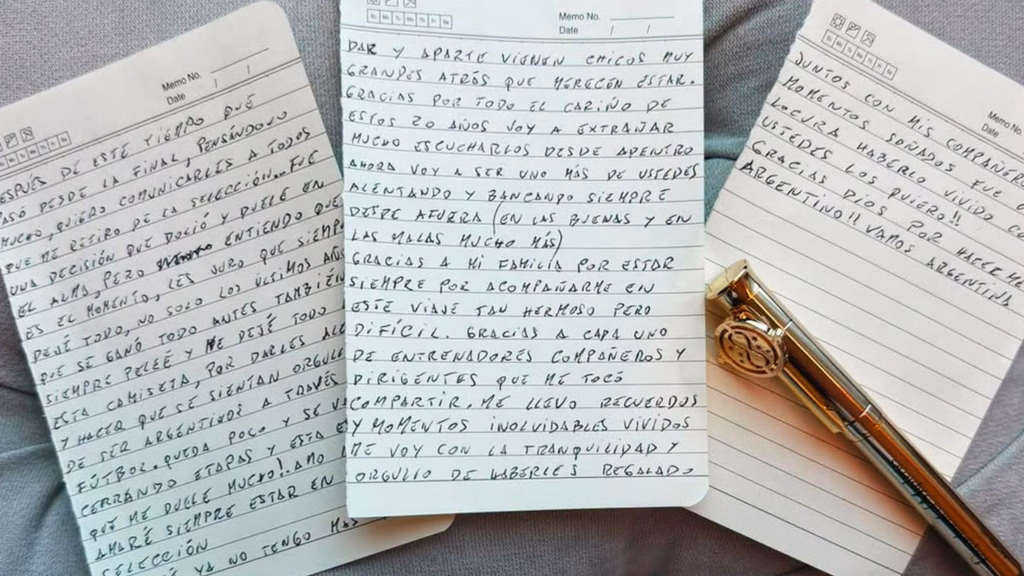 Memo No.
Date / /
ESPUÉS DE ESTE TIEMPO QUE
PASÓ DESDE LA FINAL, PENSÁNDOLO
MUCHO, QUIERO COMUNICARLES A TODOS
QUE ME RETIRO DE LA SELECCIÓN... FUE
UNA DECISIÓN QUE DOLIÓ Y DUELE EN
EL ALMA, PERO ENTIENDO QUE
ES EL MOMENTO, LES JURO QUE SIEMPR
DEJÉ TODO, NO SOLO LOS ÚLTIMOS AÑOS
QUE SE GANÓ TODO ANTES TAMBIÉN
SIEMPRE PELEÉ Y ME DEJÉ TODO
ESTA CAMISETA, POR DARLES ALE
Y HACER QUE SE SIENTAN ORGULL
DE SER ARGENTINOS A TRAVÉS
FÚTBOL. QUEDA POCO Y SE VA
CERRANDO ETAPAS Y ESTA E
QUE ME DUELE MUCHO! AMO
AMARÉ SIEMPRE ESTAR EN
SELECCIÓN
É YA NO TENGO MÁS
Memo No.
Date / /
DAR Y APARTE VIENEN CHICOS MUY
GRANDES ATRÁS QUE MERECEN ESTAR.
GRACIAS POR TODO EL CARIÑO DE
ESTOS 20 AÑOS VOY A EXTRAÑAR
MUCHO ESCUCHARLOS DESDE ADENTRO
AHORA VOY A SER UNO MÁS DE USTEDES
ALENTANDO Y BANCANDO SIEMPRE
DESDE AFUERA (EN LAS BUENAS Y EN
LAS MALAS MUCHO MÁS)
GRACIAS A MI FAMILIA POR ESTAR
SIEMPRE POR ACOMPAÑARME EN
ESTE VIAJE TAN HERMOSO PERO
DIFÍCIL. GRACIAS A CADA UNO
DE ENTRENADORES COMPAÑEROS Y
DIRIGENTES QUE ME TOCÓ
COMPARTIR. ME LLEVO RECUERDOS
Y MOMENTOS INOLVIDABLES VIVIDOS
ME VOY CON LA TRANQUILIDAD Y
ORGULLO DE HABERLES REGALADO
Memo No.
Date
JUNTOS CON MIS COMPAÑERO
MOMENTOS SOÑADOS FUE
LOCURA HABERLO VIVIDO C
USTEDES LOS QUIERO!!
GRACIAS DIOS POR HACERME
ARGENTINO!! VAMOS ARGENTINA